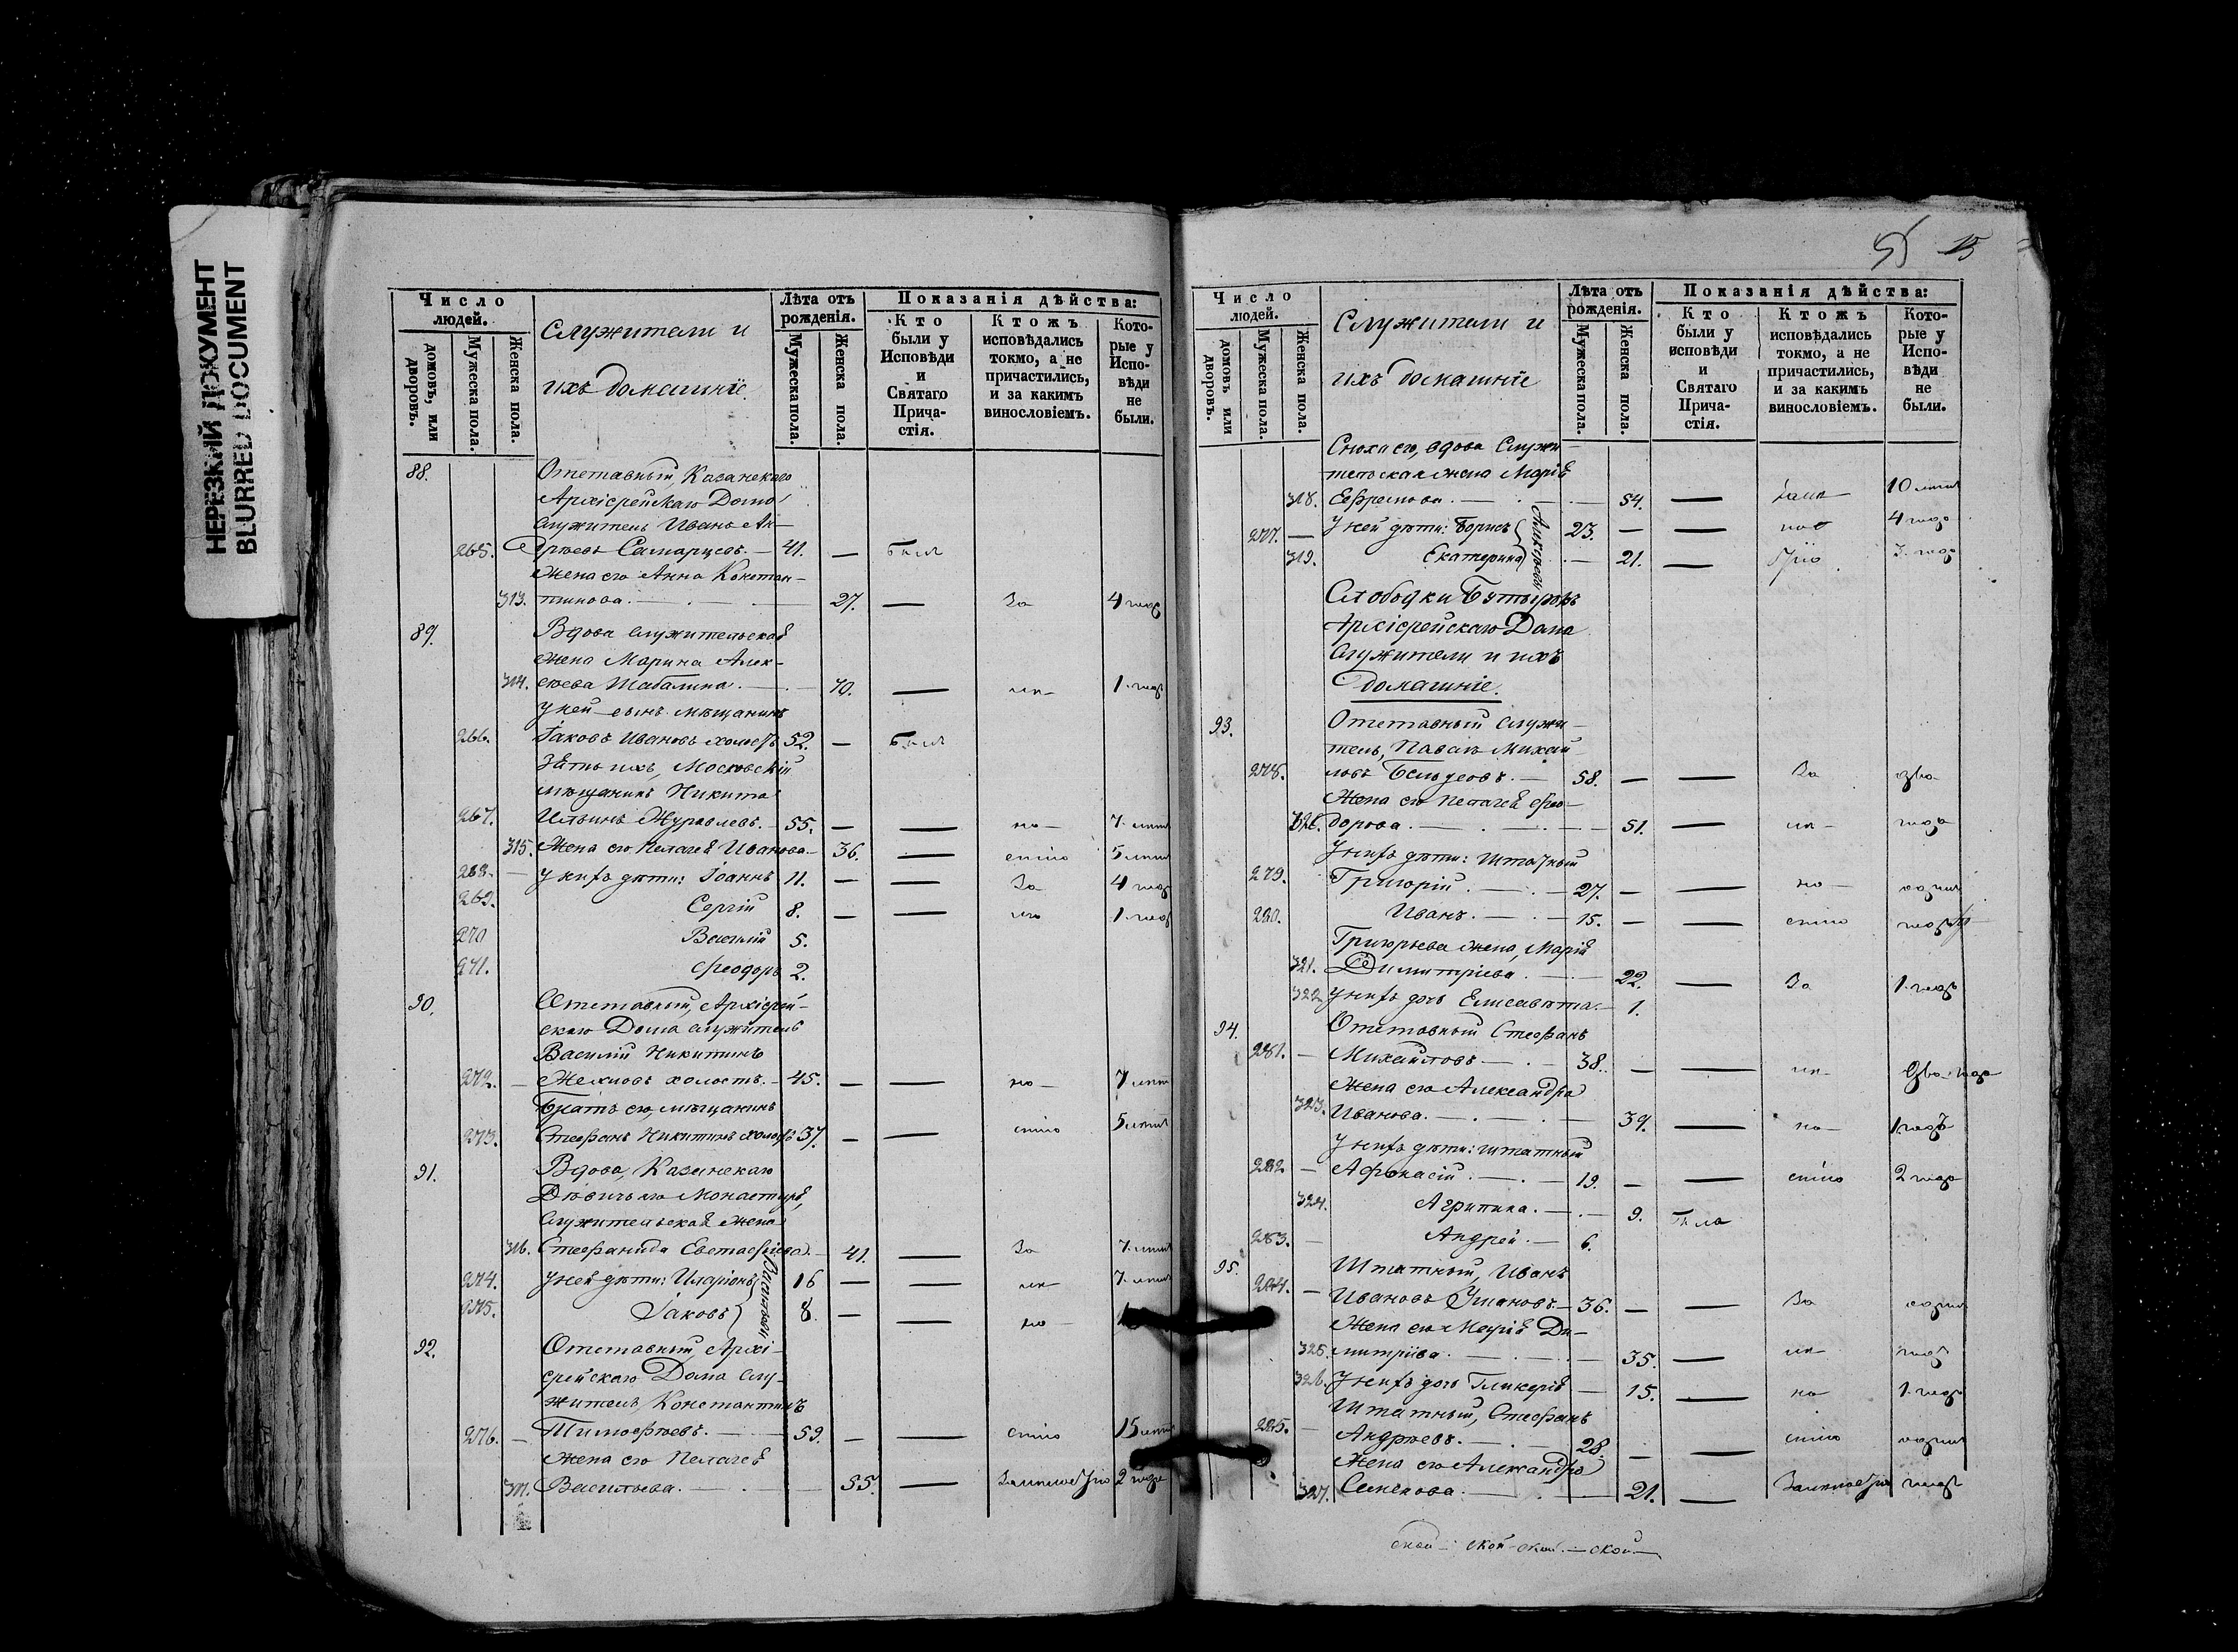 НЕРЕЗКИЙ ДОКУМЕНТ
BLURRED DOCUMENT
Число людей.
домовъ, или дворовъ.
Мужеска пола.
Женска пола.
Служители и
ихъ домашніе.
Лѣта отъ рожденія.
Мужеска пола.
Женска пола.
Показанія дѣйства:
Кто были у Исповѣди и Святаго Прича-стія.
Ктожъ исповѣдались токмо, а не причастились, и за какимъ винословіемъ.
Кото-рые у Испо-вѣди не были.
88. Отставный, Казанскаго
Архіерейскаго Дома
служитель Иванъ Ан-
265. дреевъ Самарцевъ. — 41. — былъ
Жена его Анна Констан-
313. тинова. — 27. — За 4 года
89. Вдова служительская
жена Марина Алек-
314. сѣева Шабалина. — 70. — 1. годъ
У ней сынъ мѣщанинъ
266. Іаковъ Ивановъ холостъ 52. — былъ
Зять ихъ, Московскій
мѣщанинъ Никита
267. Ильинъ Журавлевъ. — 55. — — но — 7. лѣтъ
315. Жена его Пелагея Иванова — 36. — стію 5 лѣтъ
268. — У нихъ дѣти: Іоаннъ 11. — — За 4 года
269. Сергій 8. — — 1. годъ
270 Василій 5.
271. Ѳеодоръ 2.
90. Отставный, Архіерей-
скаго Дома служитель
Василій Никитинъ
272. — холостъ. — 45. — — но — 7 лѣтъ
Братъ его, мѣщанинъ
273. Стефанъ Никитинъ холостъ 37. — — стію 5 лѣтъ
91. Вдова, Казанскаго
Дѣвичьяго Монастыря,
служительская жена
316. Стефанида Евстафіева. — 41. — За 7. лѣтъ
274. У ней дѣти: Иларіонъ 16 — — 7. лѣтъ
275. Іаковъ 8. — — но —
Васильевы
92. Отставный Архі-
ерейскаго Дома слу-
житель, Константинъ
276. — Тимофѣевъ. — 59. — — стію 15 лѣтъ
Жена его Пелагея
317. Васильева. — 55. — 2 года
15
Число людей.
домовъ или дворовъ.
Мужеска пола.
Женска пола.
Служители и
ихъ домашніе
Лѣта отъ рожденія.
Мужеска пола.
Женска пола.
Показанія дѣйства:
Кто были у исповѣди и Святаго Прича-стія.
Ктожъ исповѣдались токмо, а не причастились, и за какимъ винословіемъ.
Кото-рые у Испо-вѣди не были.
Сноха его, вдова Служи-
тельская жена Марія
318. Ефремова. — 54. — 10 лѣтъ
277. — У ней дѣти: Борисъ 23. — — 4 года
319. Екатерина — 21. — 3. года
Слободки Бутырокъ
Архіерейскаго Дома
Служители и ихъ
домашніе.
93. Отставный служи-
тель, Павелъ Михай-
278. ловъ — 58. — — За два
Жена его Пелагея Ѳео-
320. дорова. — 51. — года
У нихъ дѣти: штатный
279. Григорій. — 27. — — но — одинъ
280. Иванъ. — 15. — — стію годъ
Григорьева жена, Марія
321. Димитріева. — 22. — За 1. годъ
322 У нихъ дочь Елисавѣта. — 1.
94. Отставный Стефанъ
281. — Михайловъ — 38. — — два года
Жена его Александра
323. Иванова. — 39. — но — 1. годъ
У нихъ дѣти: штатный
282 — Афонасій. — 19. — — стію 2 года
324. Агрипина. — 9. была
283. — Андрей. — 6.
95. Штатный, Иванъ
284. — Ивановъ — 36. — — За одинъ
Жена его Марія Ди-
325. митріева. — 35. — годъ
326. У нихъ дочь Гликерія — 15. — но — 1. годъ
Штатный, Стефанъ
285. — Андреевъ. — 28. — — стію одинъ
Жена его Александра
327. Семенова. — 21. — годъ
ской — ской — ской. — ской —